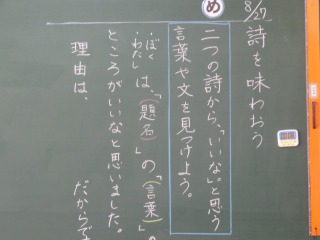 8/27
詩を味わおう
め
二つの詩から、「いいな」と思う
言葉や文を見つけよう。
・ぼく
・わたし
は、「(題名)」の「(言葉)」の
ところがいいなと思いました。
理由は、
だからです